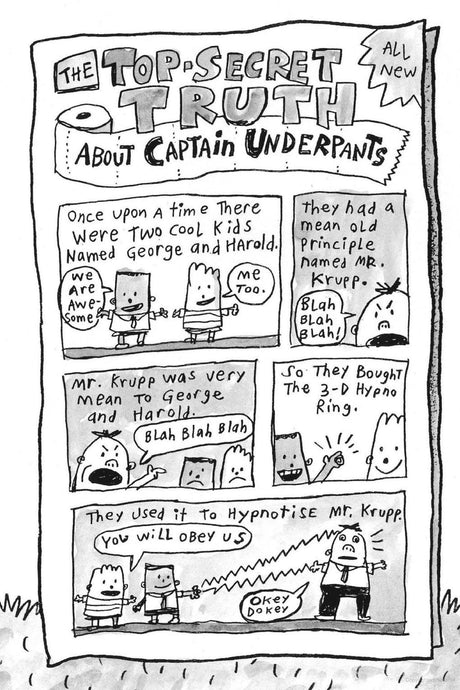 THE TOP-SECRET
TRUTH
ABOUT CAPTAIN UNDERPANTS
ALL
NEW
Once upon A time There
were Two cool Kids
Named George and Harold.
we
Are
Awe-
some!
me
Too.
They had a
mean old
Principle
named MR.
Krupp.
BLah
BLah
BLah!
Mr. Krupp was very
mean To George
and Harold.
BLah Blah Blah
So They Bought
The 3-D Hypno
Ring.
They used it to Hypnotise Mr. Krupp.
You will obey us
OKey
DoKey